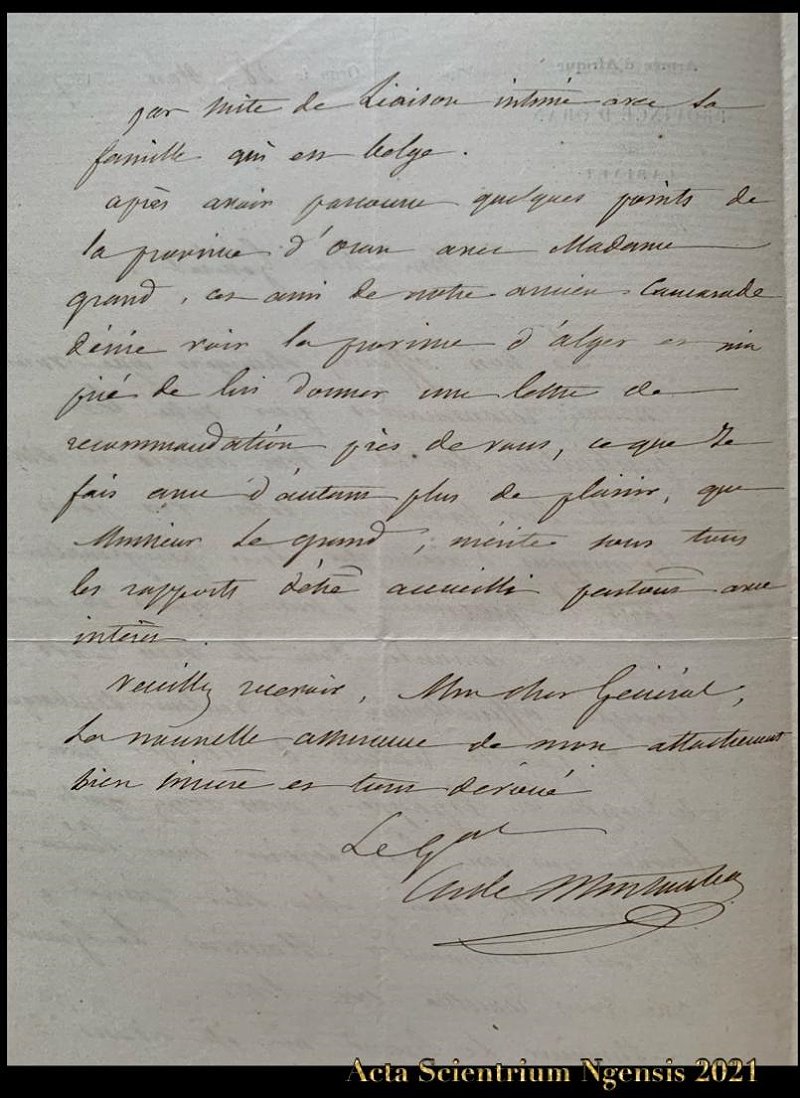 par suite de Liaison intime avec sa
famille qui est belge.
après avoir parcouru quelques points de
la province d'oran avec Madame
grand, cet ami de notre ancien Camarade
désire voir la province d'alger et m'a
prié de lui donner une lettre de
recommandation près de vous, ce que Je
fais avec d'autant plus de plaisir, que
Monsieur Le grand, mérite sous tous
les rapports d'être accueilli partout avec
intérêt.
Veuillez recevoir, Mon cher Général,
La nouvelle assurance de mon attachement
bien sincère et tout dévoué
Le Gal
Cte de Montauban
Acta Scientrium Ngensis 2021